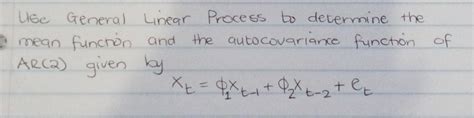 Use General Linear Process to determine the
mean function and the autocovariance function of
AR(2) given by
Xt = ϕ1Xt-1 + ϕ2Xt-2 + et